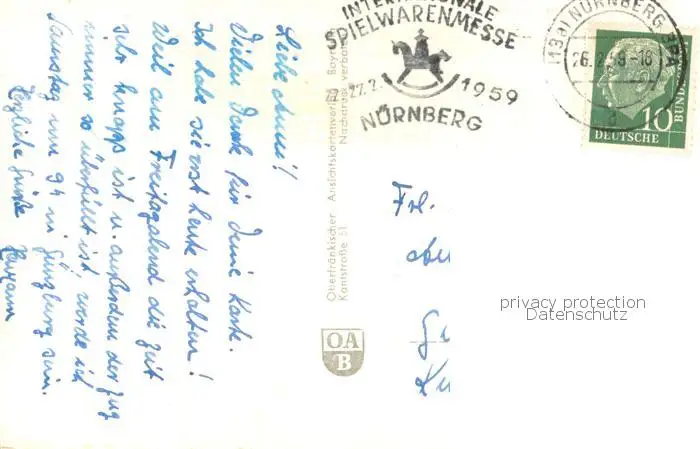 Liebe Anni!
Vielen Dank für Deine Karte.
Ich habe sie erst heute erhalten!
Weil am Freitagabend die Zeit
sehr knapp ist u. außerdem der Zug
immer so überfüllt ist, werde ich
Samstag um 9h in Günzburg sein.
Herzliche Grüße
Oberfränkischer Ansichtskartenverlag Bay
Kantstraße 51 Nachdruck verboten
OA
B
INTERNATIONALE
SPIELWARENMESSE
27.2. 1959
NÜRNBERG
(13a) NÜRNBERG
26.2.59-18
a
10
DEUTSCHE
BUND
Frl.
privacy protection
Datenschutz